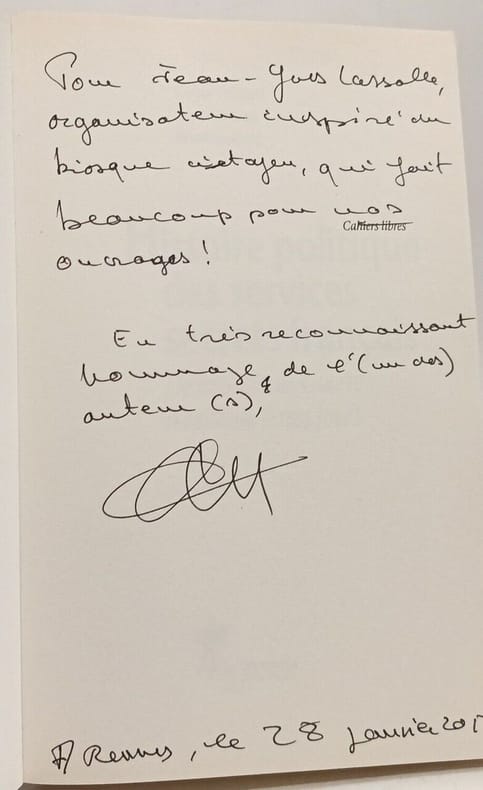 Pour Jean-Yves Lassalle,
organisateur inspiré du
kiosque citoyen, qui fait
beaucoup pour nos
Cahiers libres
ouvrages !
En très reconnaissant
hommage, de l'(un des)
auteur (s),
A Rennes, le 28 janvier 201